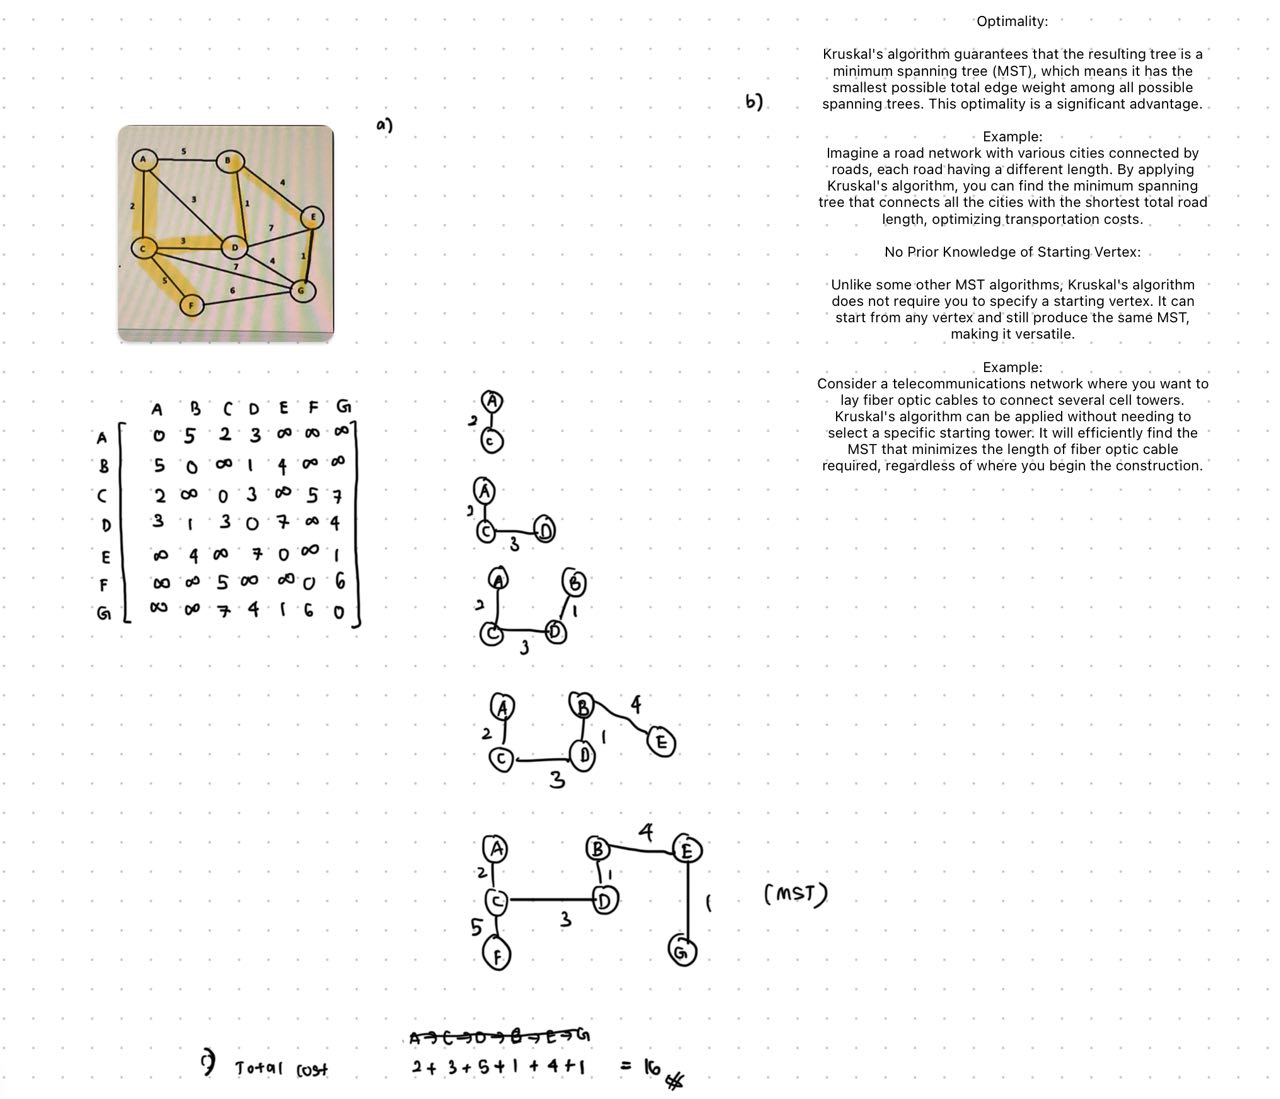 a)
A 5 B
4
2 3 1 E
7
C 3 D
7 4 1
5
6 G
F
A B C D E F G
A 0 5 2 3 ∞ ∞ ∞
B 5 0 ∞ 1 4 ∞ ∞
C 2 ∞ 0 3 ∞ 5 7
D 3 1 3 0 7 ∞ 4
E ∞ 4 ∞ 7 0 ∞ 1
F ∞ ∞ 5 ∞ ∞ 0 6
G ∞ ∞ 7 4 1 6 0
A
2
C
A
2
C D
3
A B
2 1
C D
3
A B 4
2 1 E
C D
3
4
A B E
2 1
C D 1 (MST)
5 3
F G
A→C→D→B→E→G
c) Total cost 2 + 3 + 5 + 1 + 4 + 1 = 16
b)
Optimality:
Kruskal's algorithm guarantees that the resulting tree is a
minimum spanning tree (MST), which means it has the
smallest possible total edge weight among all possible
spanning trees. This optimality is a significant advantage.
Example:
Imagine a road network with various cities connected by
roads, each road having a different length. By applying
Kruskal's algorithm, you can find the minimum spanning
tree that connects all the cities with the shortest total road
length, optimizing transportation costs.
No Prior Knowledge of Starting Vertex:
Unlike some other MST algorithms, Kruskal's algorithm
does not require you to specify a starting vertex. It can
start from any vertex and still produce the same MST,
making it versatile.
Example:
Consider a telecommunications network where you want to
lay fiber optic cables to connect several cell towers.
Kruskal's algorithm can be applied without needing to
select a specific starting tower. It will efficiently find the
MST that minimizes the length of fiber optic cable
required, regardless of where you begin the construction.